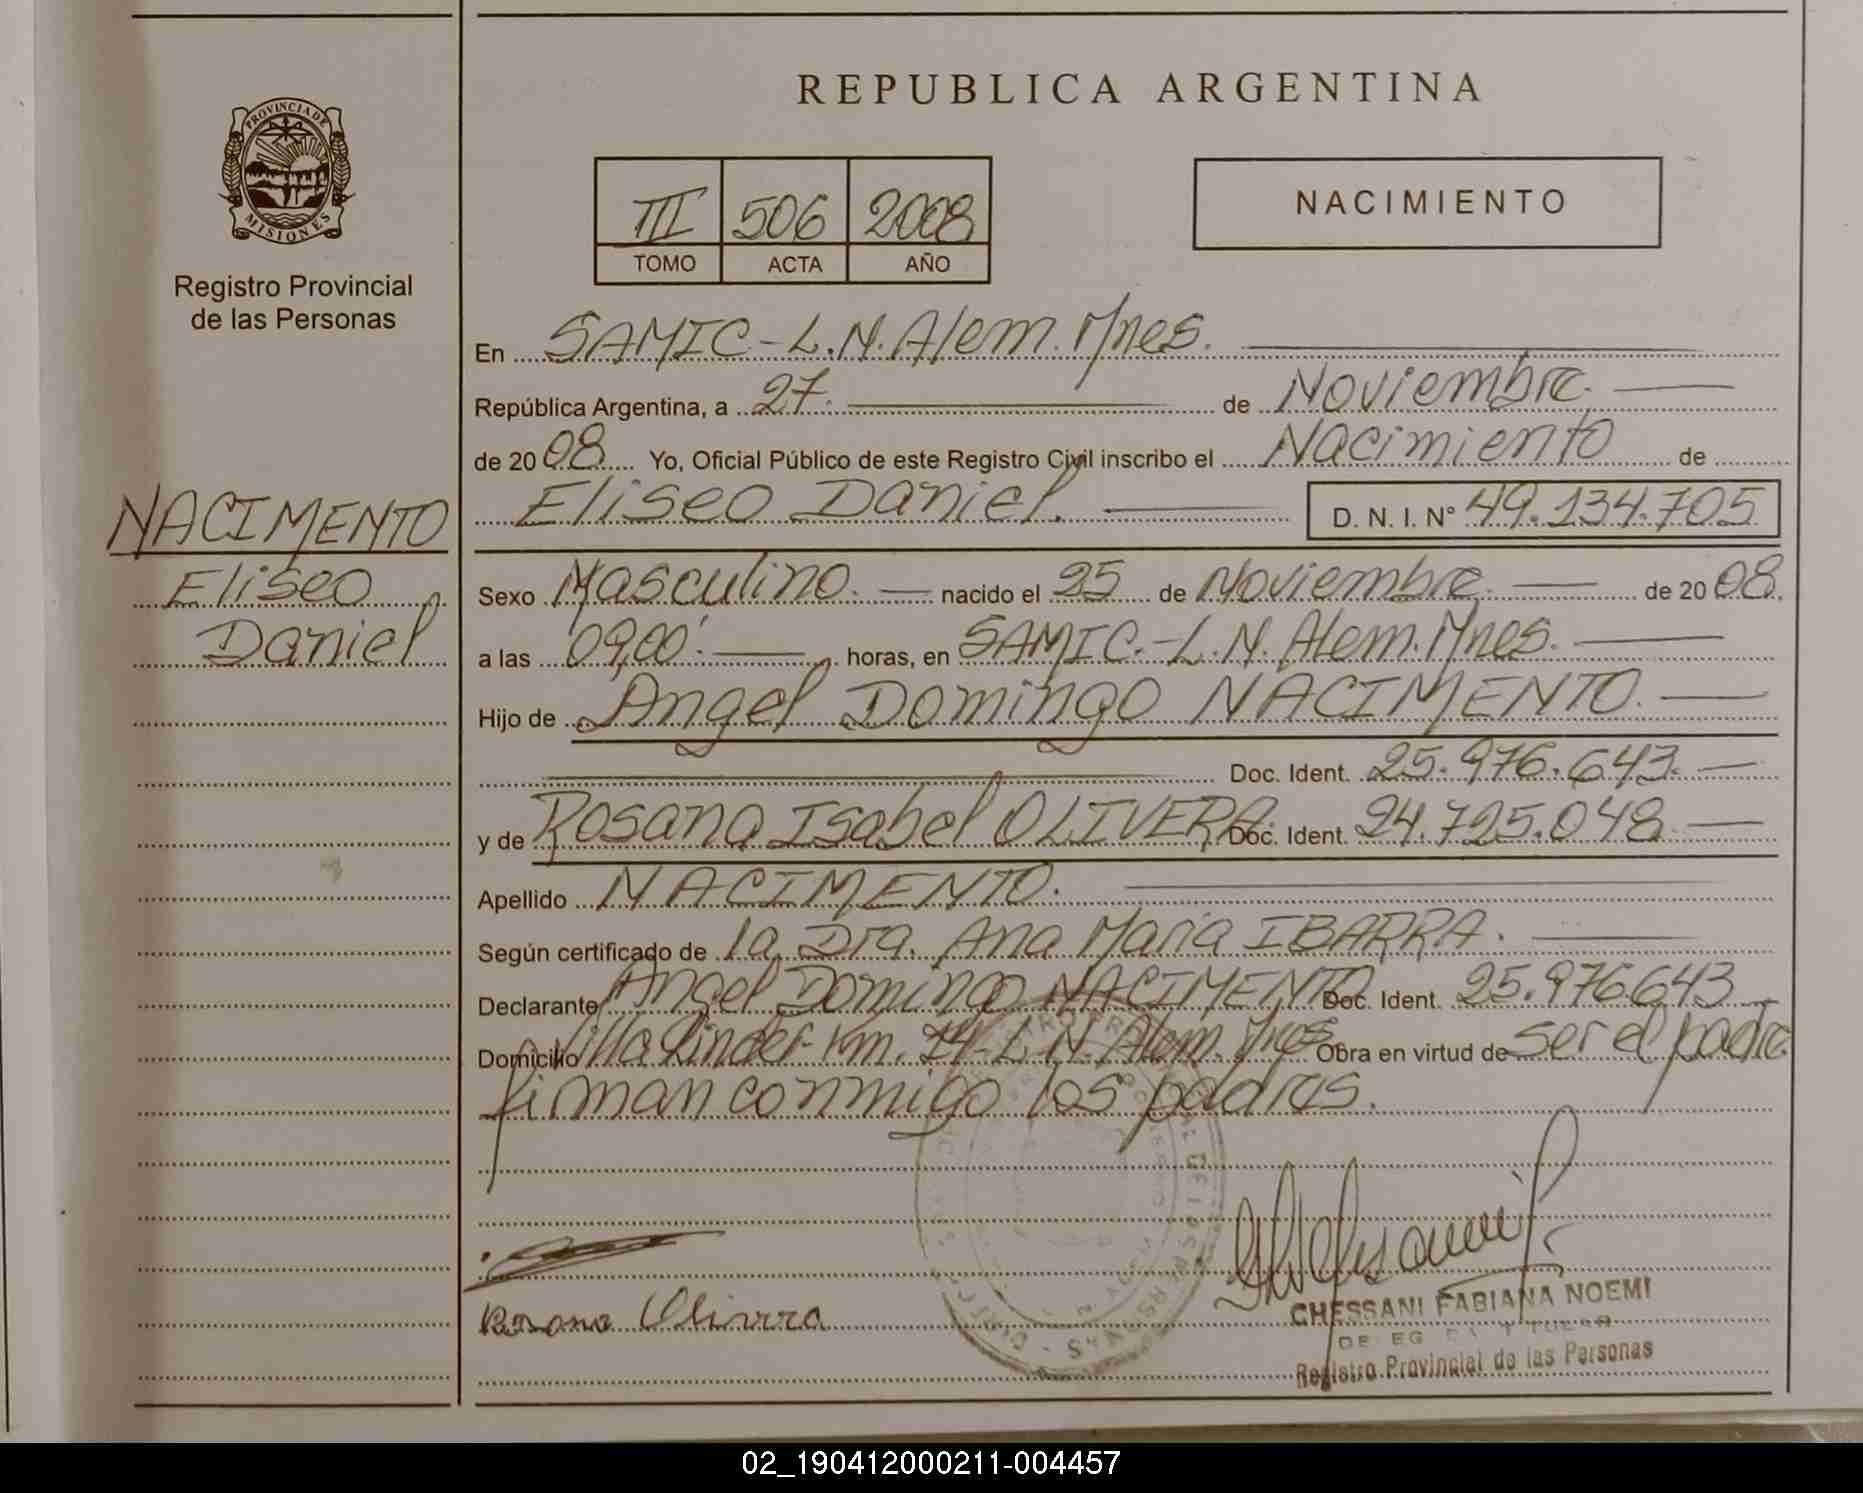 REPUBLICA ARGENTINA
PROVINCIA DE
MISIONES
Registro Provincial
de las Personas
III 506 2008
TOMO ACTA AÑO
NACIMIENTO
En SAMIC-L.N.Alem.Mnes.
República Argentina, a 27. de Noviembre.
de 2008. Yo, Oficial Público de este Registro Civil inscribo el Nacimiento de
Eliseo Daniel. D. N. I. N° 49.134.705
NACIMENTO
Eliseo
Daniel
Sexo Masculino. nacido el 25 de Noviembre. de 2008.
a las 09,00'. horas, en SAMIC.-L.N. Alem.Mnes.
Hijo de Angel Domingo NACIMENTO.
Doc. Ident. 25.976.643.
y de Rosana Isabel OLIVERA Doc. Ident. 24.725.048.
Apellido NACIMENTO.
Según certificado de la Dra. Ana Maria IBARRA.
Declarante Angel Domingo NACIMENTO Doc. Ident. 25.976.643
Domicilio Villa Linder Km. 24-L.N. Alem. Mnes. Obra en virtud de ser el padre
firman conmigo los padres.
Rosana Olivera
CHESSANI FABIANA NOEMI
Registro Provincial de las Personas
02_190412000211-004457